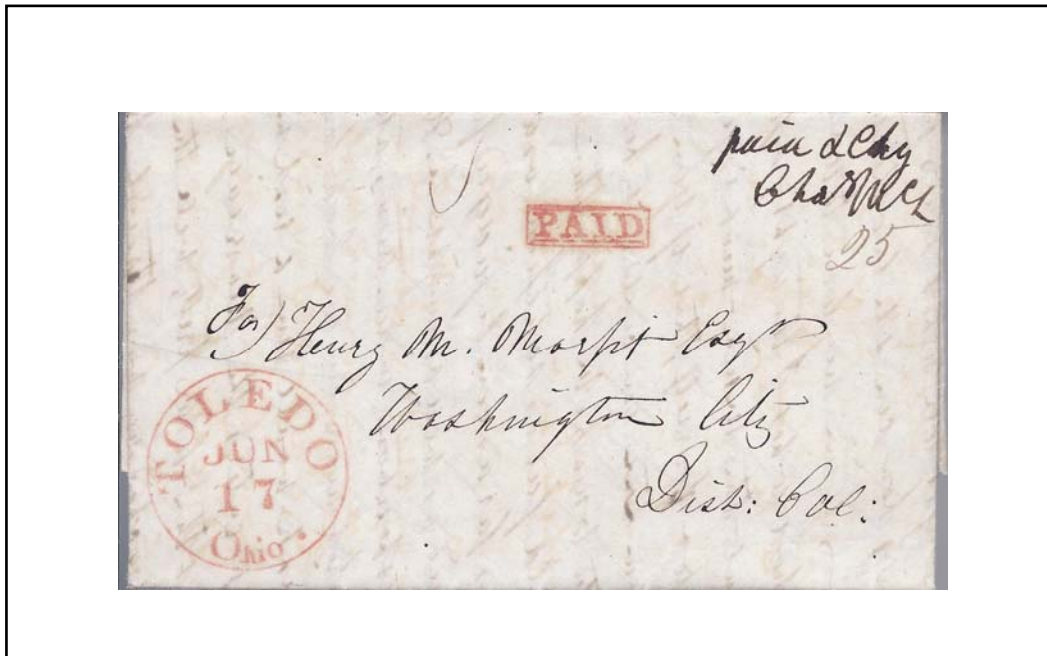 paid & Chg
25
PAID
For) Henry M. Morfit Esqr
Washington City
Dist: Col:
TOLEDO
JUN
17
Ohio